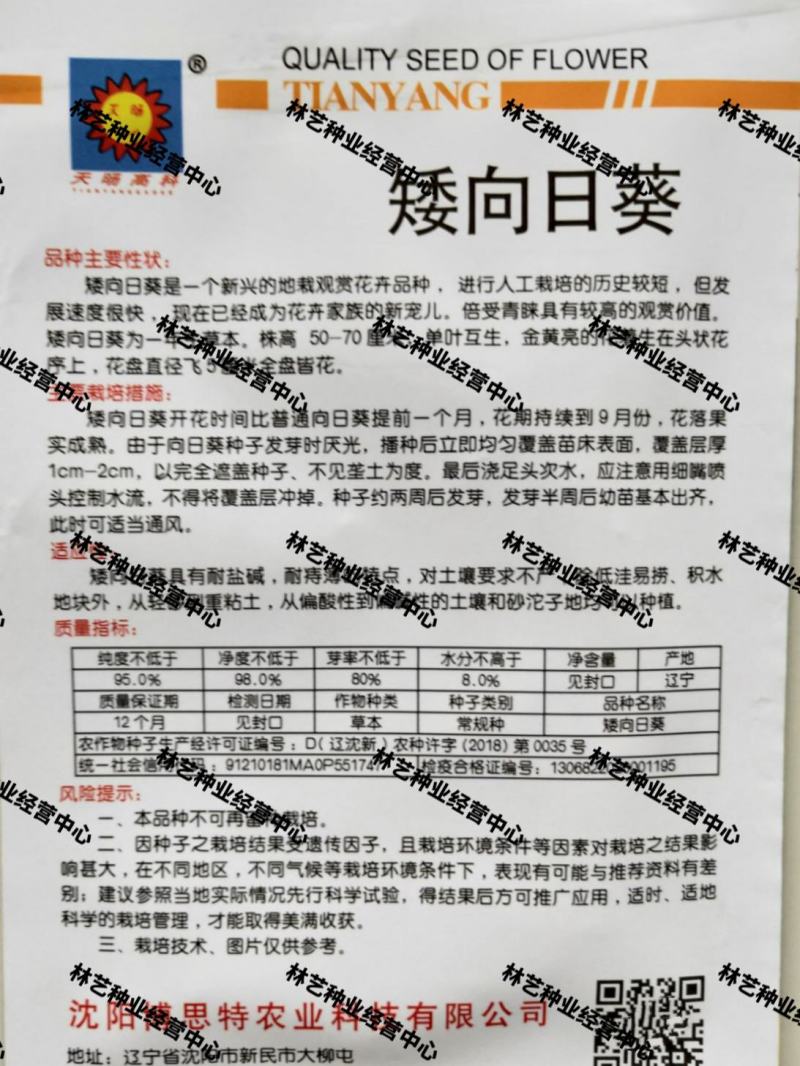 QUALITY SEED OF FLOWER
TIANYANG
®
天旸高科
矮向日葵
品种主要性状：
矮向日葵是一个新兴的地栽观赏花卉品种，进行人工栽培的历史较短，但发
展速度很快，现在已经成为花卉家族的新宠儿。倍受青睐具有较高的观赏价值。
矮向日葵为一年 草本。株高 50-70厘 单叶互生，金黄亮的花 生在头状花
序上，花盘直径飞5 全盘皆花。
主要栽培措施：
矮向日葵开花时间比普通向日葵提前一个月，花期持续到9月份，花落果
实成熟。由于向日葵种子发芽时厌光，播种后立即均匀覆盖苗床表面，覆盖层厚
1cm-2cm，以完全遮盖种子、不见垄土为度。最后浇足头次水，应注意用细嘴喷
头控制水流，不得将覆盖层冲掉。种子约两周后发芽，发芽半周后幼苗基本出齐，
此时可适当通风。
适应
矮向日葵具有耐盐碱，耐痔薄 点，对土壤要求不 低洼易捞、积水
地块外，从轻 重粘土，从偏酸性到偏 性的土壤和砂沱子地均 以种植。
质量指标：
纯度不低于 净度不低于 芽率不低于 水分不高于 净含量 产地
95.0% 98.0% 80% 8.0% 见封口 辽宁
质量保证期 检测日期 作物种类 种子类别 品种名称
12个月 见封口 草本 常规种 矮向日葵
农作物种子生产经许可证编号：D（辽沈新）农种许字(2018)第0035号
统一社会信 码：91210181MA0P5517 检疫合格证编号：13068 001195
风险提示：
一、本品种不可再留 栽培。
二、因种子之栽培结果受遗传因子，且栽培环境条件等因素对栽培之结果影
响甚大，在不同地区，不同气候等栽培环境条件下，表现有可能与推荐资料有差
别；建议参照当地实际情况先行科学试验，得结果后方可推广应用，适时、适地
科学的栽培管理，才能取得美满收获。
三、栽培技术、图片仅供参考。
沈阳博思特农业科技有限公司
地址：辽宁省沈阳市新民市大柳屯
林艺种业经营中心